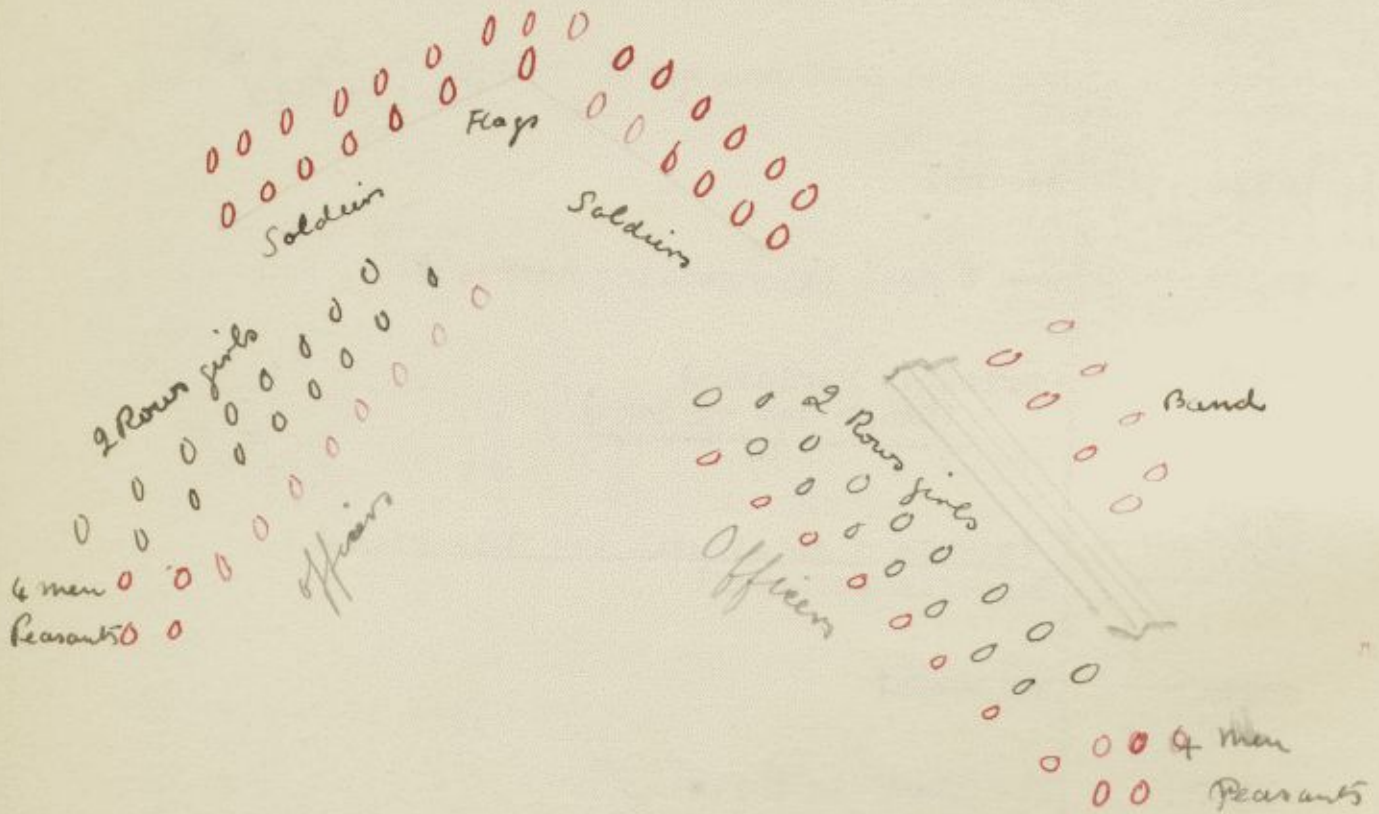 Flags
Soldiers
Soldiers
2 Rows girls
officers
4 men
Peasants
2 Rows girls
Officers
Band
4 men
Peasants